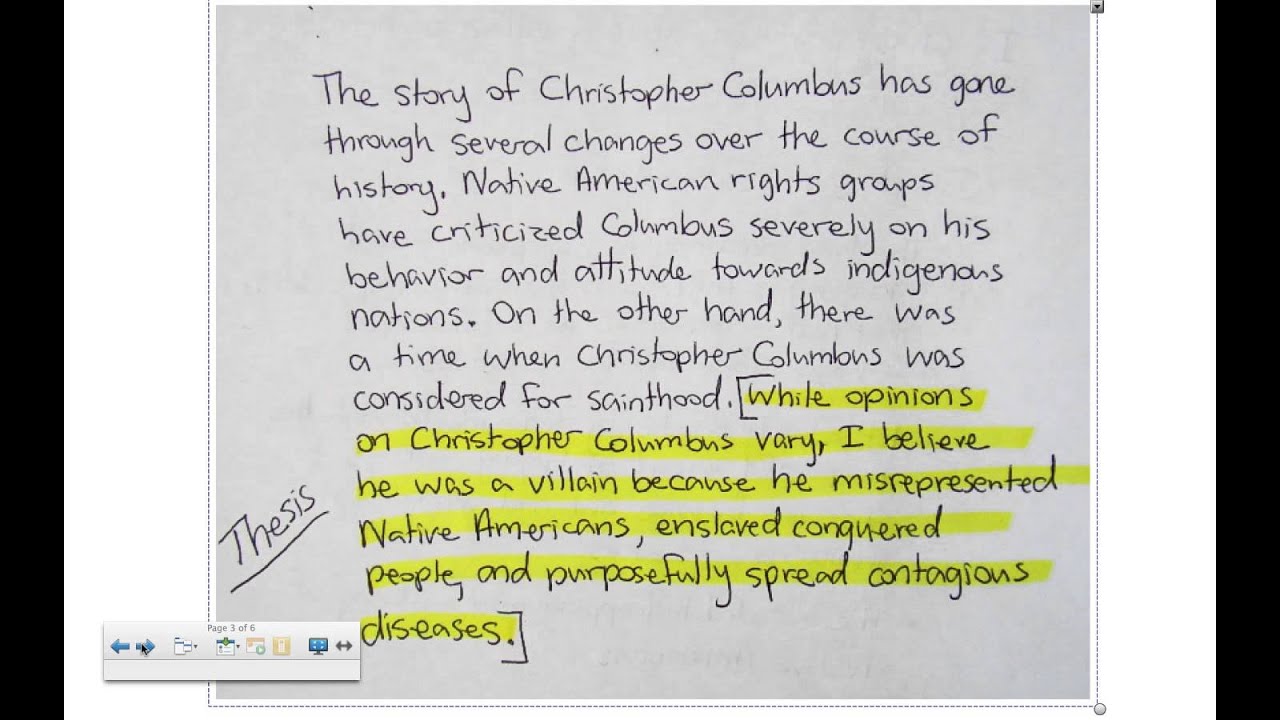 The story of Christopher Columbus has gone
through several changes over the course of
history. Native American rights groups
have criticized Columbus severely on his
behavior and attitude towards indigenous
nations. On the other hand, there was
a time when Christopher Columbus was
considered for sainthood. [While opinions
on Christopher Columbus vary, I believe
he was a villain because he misrepresented
Native Americans, enslaved conquered
people, and purposefully spread contagious
diseases.]
Thesis
Page 3 of 6